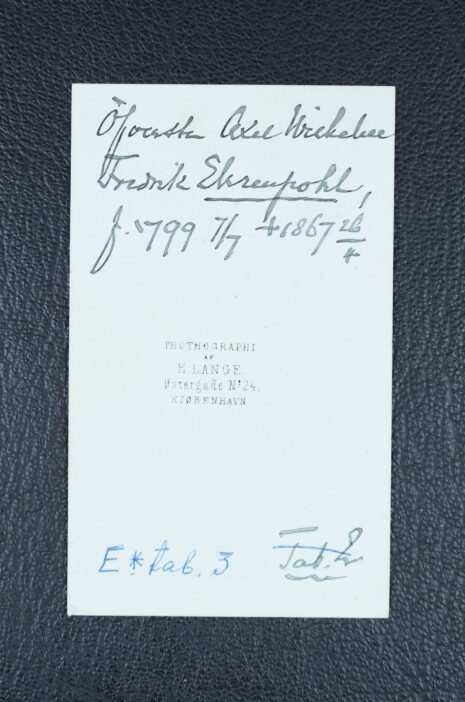 Öfversten Axel Wilhelm
Fredrik Ehrenpohl,
f. 1799 7/7 +1867 26/4
PHOTHOGRAPHI
AF
E. LANGE.
Østergade No 24.
KJØBENHAVN.
E * tab. 3 Tab. 2